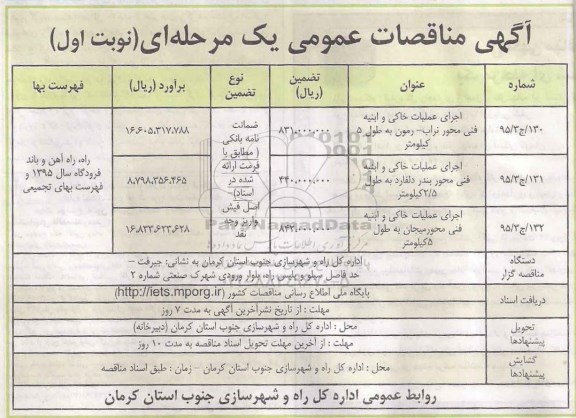 آگهی مناقصات عمومی یک مرحله‌ای (نوبت اول)
شماره
عنوان
تضمین (ریال)
نوع تضمین
برآورد (ریال)
فهرست بها
۹۵/۳/ج/۱۳۰
اجرای عملیات خاکی و ابنیه
فنی محور تراب- رمون به طول ۵
کیلومتر
۸۳۱،۰۰۰،۰۰۰
۱۶،۶۰۵،۳۱۷،۷۸۸
۹۵/۳/ج/۱۳۱
اجرای عملیات خاکی و ابنیه
فنی محور بندر دلفارد به طول
۲/۵کیلومتر
۴۴۰،۰۰۰،۰۰۰
۸،۷۹۸،۳۵۶،۴۶۵
۹۵/۳/ج/۱۳۲
اجرای عملیات خاکی و ابنیه
فنی محورمیجان به طول
۵کیلومتر
۱۶،۸۳۳،۶۲۳،۶۲۸
ضمانت
نامه بانکی
( مطابق با
فرمت ارائه
شده در
اسناد)-
اصل فیش
واریز وجه
نقد
راه، راه آهن و باند
فرودگاه سال ۱۳۹۵ و
فهرست بهای تجمیعی
دستگاه
مناقصه گزار
اداره کل راه و شهرسازی جنوب استان کرمان به نشانی: جیرفت –
حد فاصل سیلو و پلیس راه، بلوار ورودی شهرک صنعتی شماره ۲
دریافت اسناد
پایگاه ملی اطلاع رسانی مناقصات کشور (http://iets.mporg.ir)
مهلت : از تاریخ نشرآخرین آگهی به مدت ۷ روز
تحویل
پیشنهادها
محل : اداره کل راه و شهرسازی جنوب استان کرمان (دبیرخانه)
مهلت : از آخرین مهلت تحویل اسناد مناقصه به مدت ۱۰ روز
گشایش
پیشنهادها
محل : اداره کل راه و شهرسازی جنوب استان کرمان – زمان : طبق اسناد مناقصه
روابط عمومی اداره کل راه و شهرسازی جنوب استان کرمان
ParsNamadData